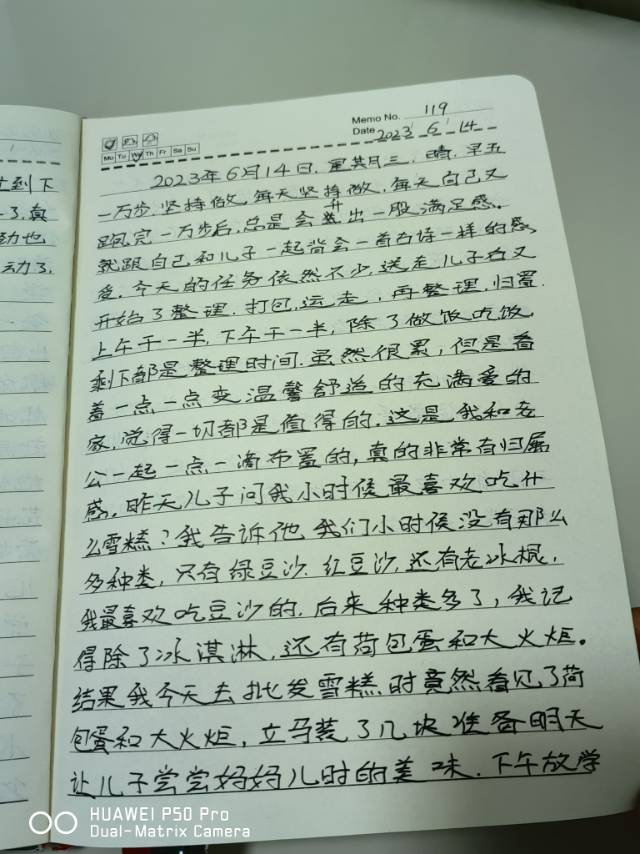 Memo No. 119
Date 2023 6 14
Mo Tu We Th Fr Sa Su
2023年6月14日. 星期三, 晴. 早五
一万步. 坚持做, 每天坚持做, 每天自己又
跑完一万步后, 总是会升出一股满足感.
就跟自己和儿子一起背会一首古诗一样的感
受. 今天的任务依然不少. 送走儿子后又
开始了整理. 打包, 运走, 再整理. 归置.
上午干一半, 下午干一半, 除了做饭吃饭,
剩下都是整理时间. 虽然很累, 但是看
着一点一点变温馨舒适的充满爱的
家, 觉得一切都是值得的. 这是我和老
公一起一点一滴布置的, 真的非常有归属
感. 昨天儿子问我小时候最喜欢吃什
么雪糕? 我告诉他 我们小时候没有那么
多种类, 只有绿豆沙. 红豆沙. 还有老冰棍.
我最喜欢吃豆沙的. 后来种类多了, 我记
得除了冰淇淋, 还有荷包蛋和大火炬.
结果我今天去批发雪糕时竟然看见了荷
包蛋和大火炬, 立马装了几块准备明天
让儿子尝尝妈妈儿时的美味. 下午放学
到下
了, 真
动也
动了.
HUAWEI P50 Pro
Dual-Matrix Camera